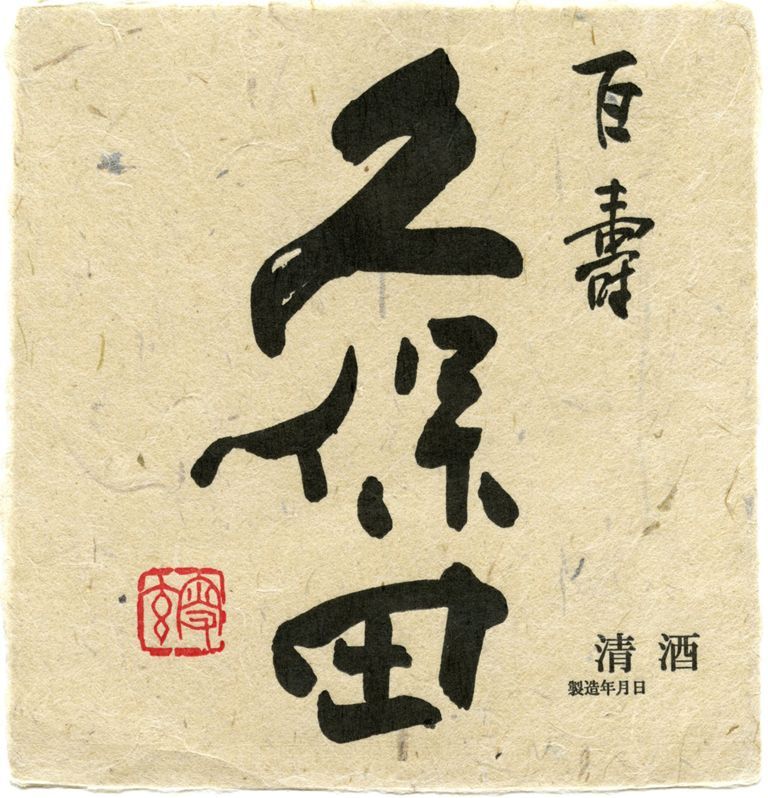 百壽
久保田
清酒
製造年月日